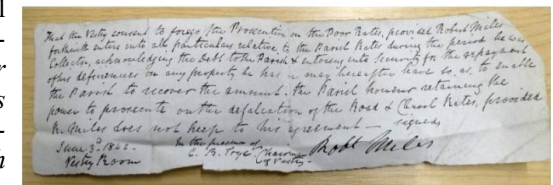 l
-
r
s
-
h
That the Vestry consent to forego the Prosecution on the Poor Rates, provided Robert Miles
forthwith enters into all particulars relative to the Parish Rates during the period he was
Collector, acknowledging the Debt to the Parish & entering into Security for the repayment
of his deficiences on any property he has or may hereafter have so as to enable
the Parish to recover the amount. the Parish however retaining the
power to prosecute on the defalication of the Road & Church Rates, provided
R. Miles does not keep to his agreement — signed
June 3d. 1842. In the presence of
Vestry Room C. B. Chairman of Vestry - Robt Miles